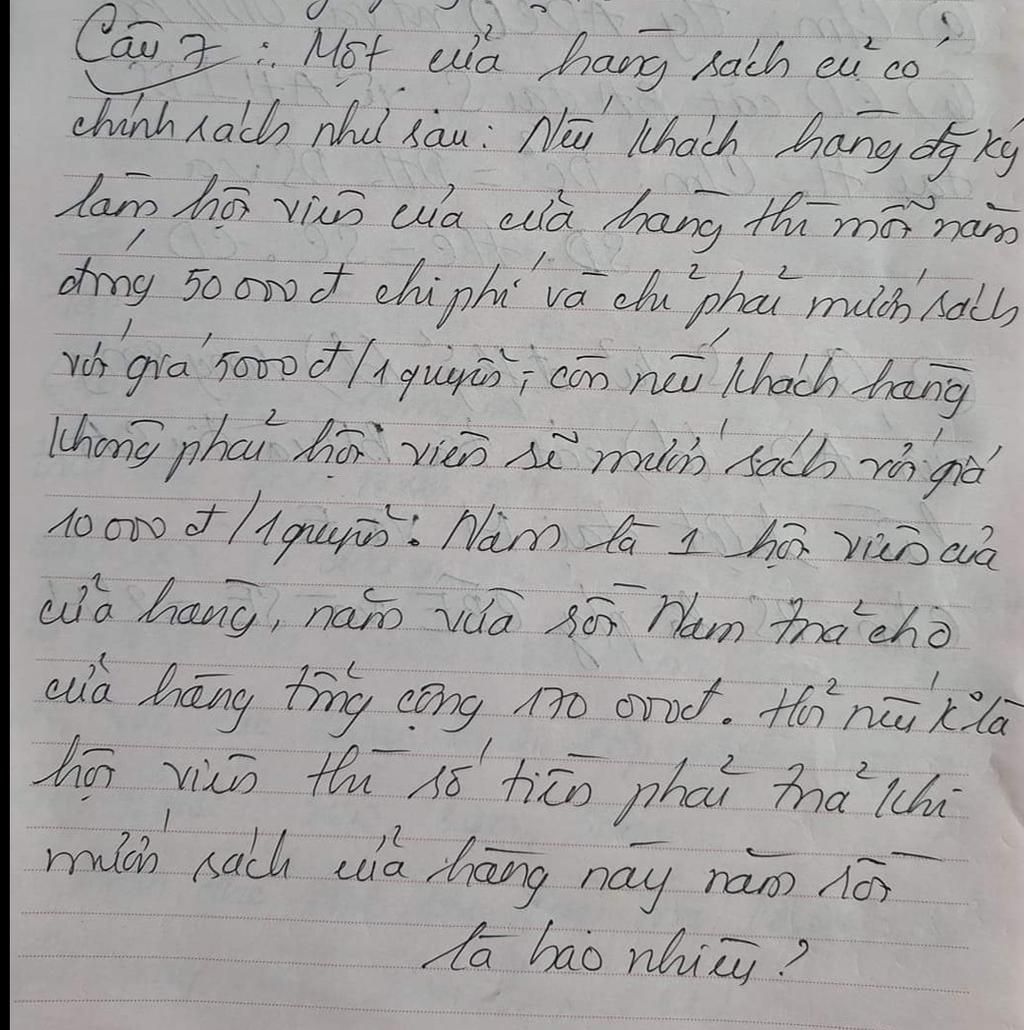 Câu 7 : Một cửa hàng sách cũ có
chính sách như sau: Nếu khách hàng đg ký
làm hội viên của cửa hàng thì mỗi năm
đóng 50 000 đ chi phí và chỉ phải mướn sách
với giá 5000 đ / 1 quyển; còn nếu khách hàng
không phải hội viên sẽ mướn sách với giá
10 000 đ / 1 quyển. Nam là 1 hội viên của
cửa hàng, năm vừa rồi Nam trả cho
cửa hàng tổng cộng 170 000đ. Hỏi nếu k là
hội viên thì số tiền phải trả khi
mướn sách cửa hàng này năm rồi
là bao nhiêu ?